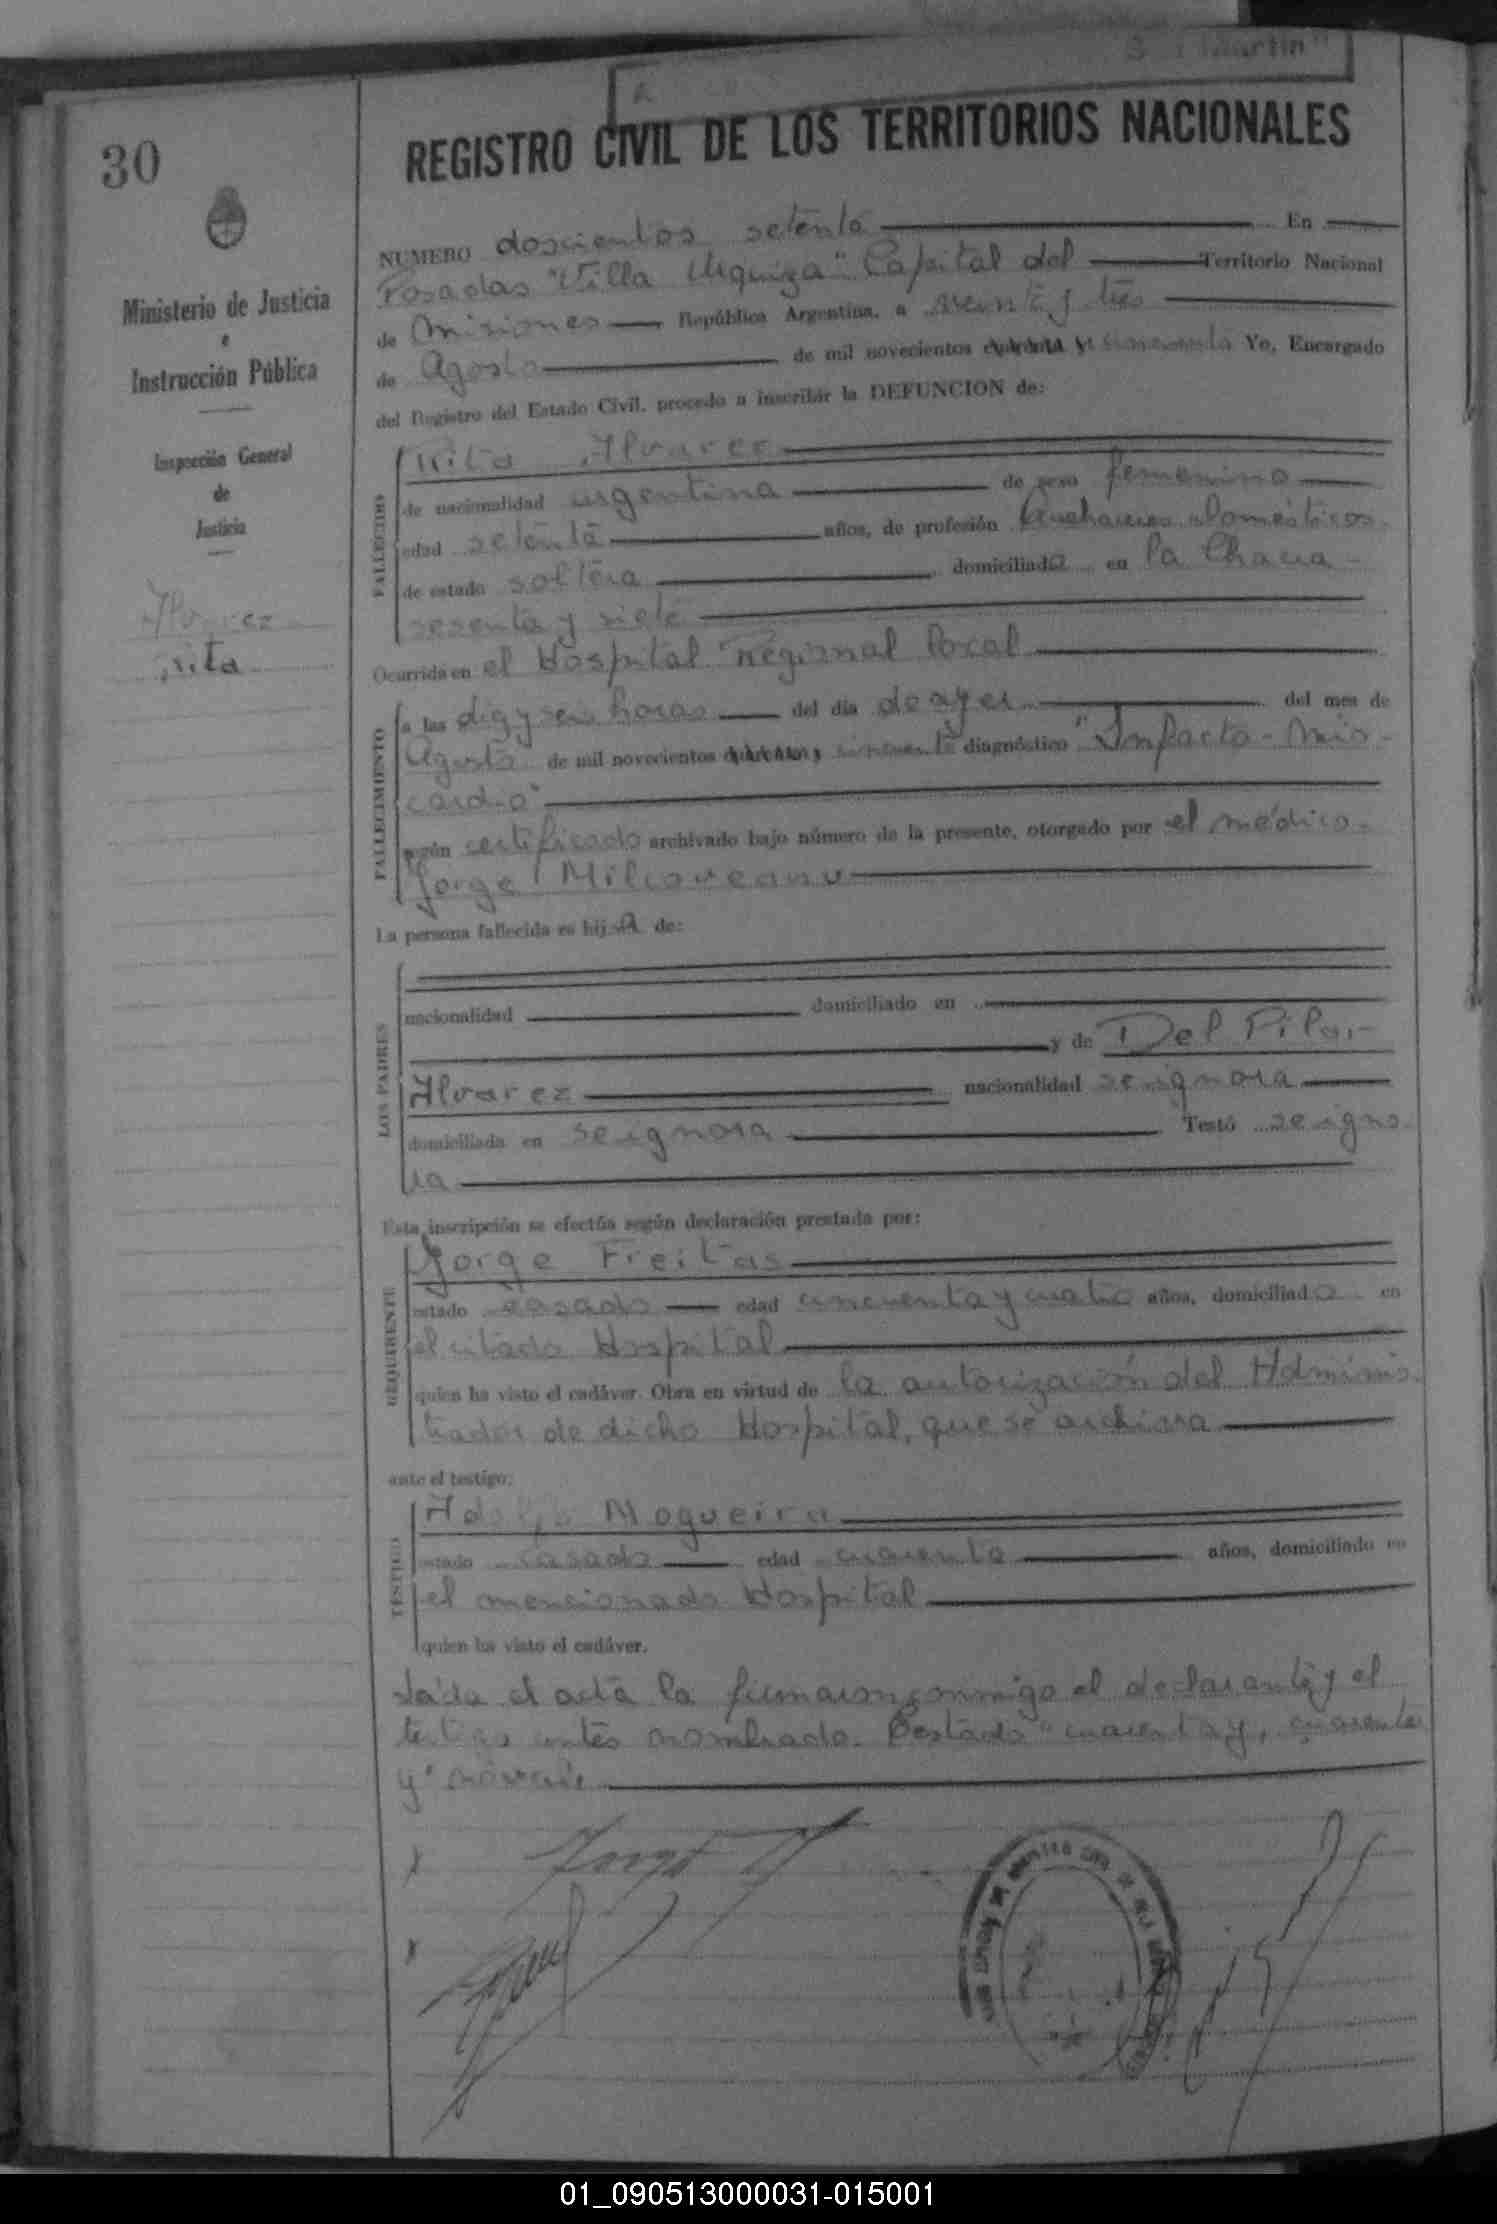 Martin"
30
REGISTRO CIVIL DE LOS TERRITORIOS NACIONALES
Ministerio de Justicia
e
Instrucción Pública
Inspección General
de
Justicia
Alvarez
Rita
NUMERO doscientos setenta En
Posadas "Villa Urquiza" Capital del Territorio Nacional
de Misiones República Argentina, a veinte y tres
de Agosto de mil novecientos cuarenta y cincuenta Yo, Encargado
del Registro del Estado Civil, procedo a inscribir la DEFUNCION de:
FALLECIDO
Rita Alvarez
de nacionalidad argentina de sexo femenino
edad setenta años, de profesión Quehaceres domésticos
de estado soltera domiciliada en la Chacra
sesenta y siete
Ocurrida en el Hospital Regional local
FALLECIMIENTO
a las diez y seis horas del día de ayer del mes de
Agosto de mil novecientos cuarenta y cincuenta diagnóstico "Infarto-mio-
cardio"
según certificado archivado bajo número de la presente, otorgado por el médico
Jorge Milcoveanu
La persona fallecida es hija de:
LOS PADRES
nacionalidad domiciliado en
y de Del Pilar
Alvarez nacionalidad se ignora
domiciliada en se ignora Testó se igno-
ra
Esta inscripción se efectúa según declaración prestada por:
REQUIRENTE
Jorge Freitas
estado casado edad cincuenta y cuatro años, domiciliado en
el citado Hospital
quien ha visto el cadáver. Obra en virtud de la autorización del Adminis-
trador de dicho Hospital, que se archiva
ante el testigo:
TESTIGO
Adolfo Nogueira
estado casado edad cuarenta años, domiciliado en
el mencionado Hospital
quien ha visto el cadáver.
Leída el acta la firmaron conmigo el declarante y el
testigo antes nombrado. Testado "cuarenta y, cuarenta
y" no vale
01_090513000031-015001